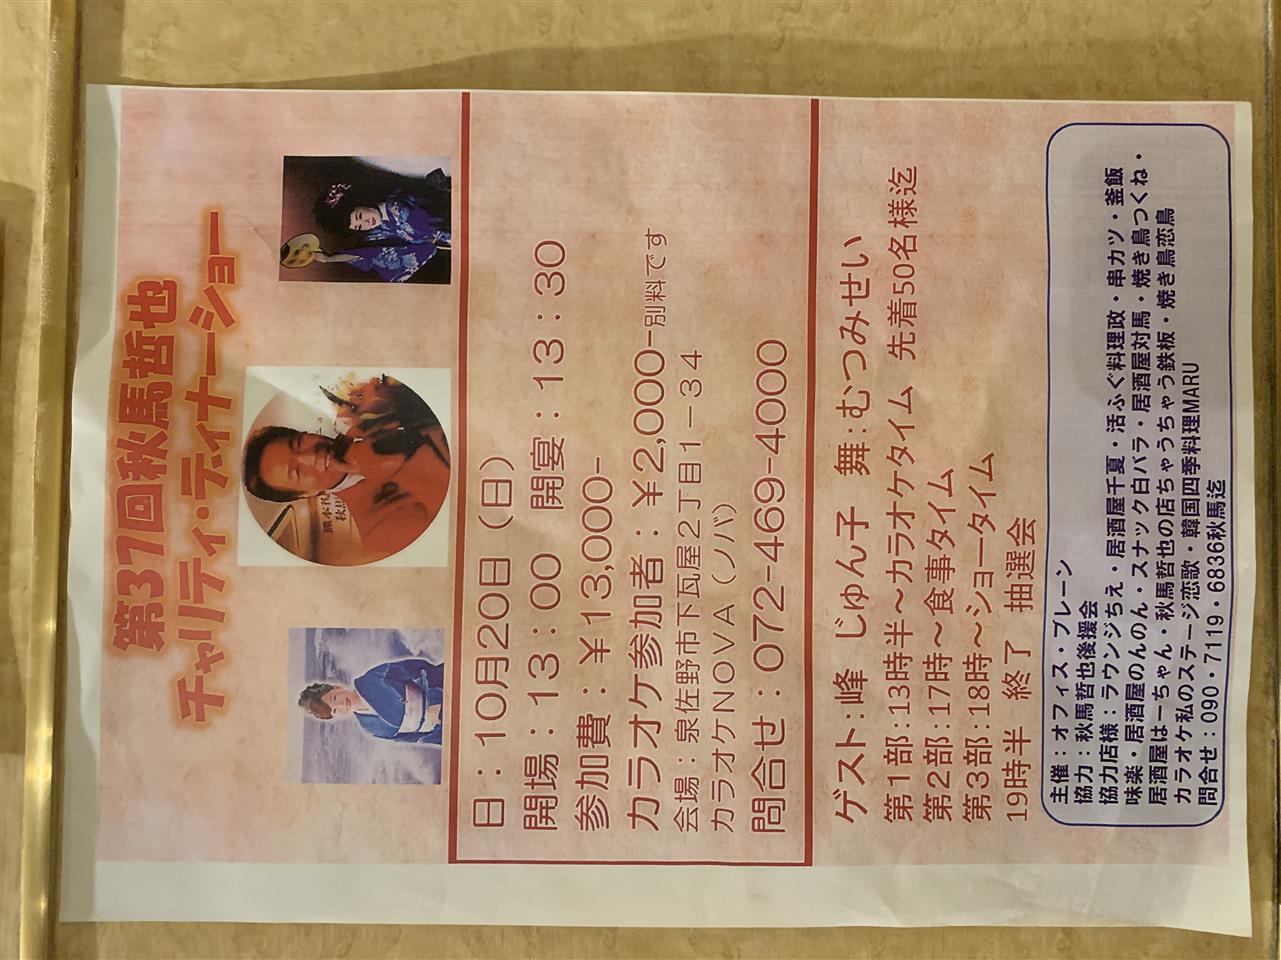 第37回秋馬哲也
チャリティ・ディナーショー
熊本桜
秋馬
日：10月20日（日）
開場：13：00　開宴：13：30
参加費：￥13,000-
カラオケ参加者：￥2,000-別料です
会場：泉佐野市下瓦屋2丁目1－34
カラオケNOVA（ノバ）
問合せ：072-469-4000
ゲスト：峰　じゅん子　舞：むつみせい
第1部：13時半～カラオケタイム　先着50名様迄
第2部：17時～食事タイム
第3部：18時～ショータイム
19時半　終了　抽選会
主催：オフィス・ブレーン
協力：秋馬哲也後援会
協力店様：ラウンジちえ・居酒屋千夏・活ふぐ料理政・串カツ・釜飯
味楽・居酒屋のんのん・スナック白バラ・居酒屋対馬・焼き鳥つくね・
居酒屋はーちゃん・秋馬哲也の店ちゃうちゃう鉄板・焼き鳥恋鳥
カラオケ私のステージ恋歌・韓国四季料理MARU
問合せ：090・7119・6836秋馬迄